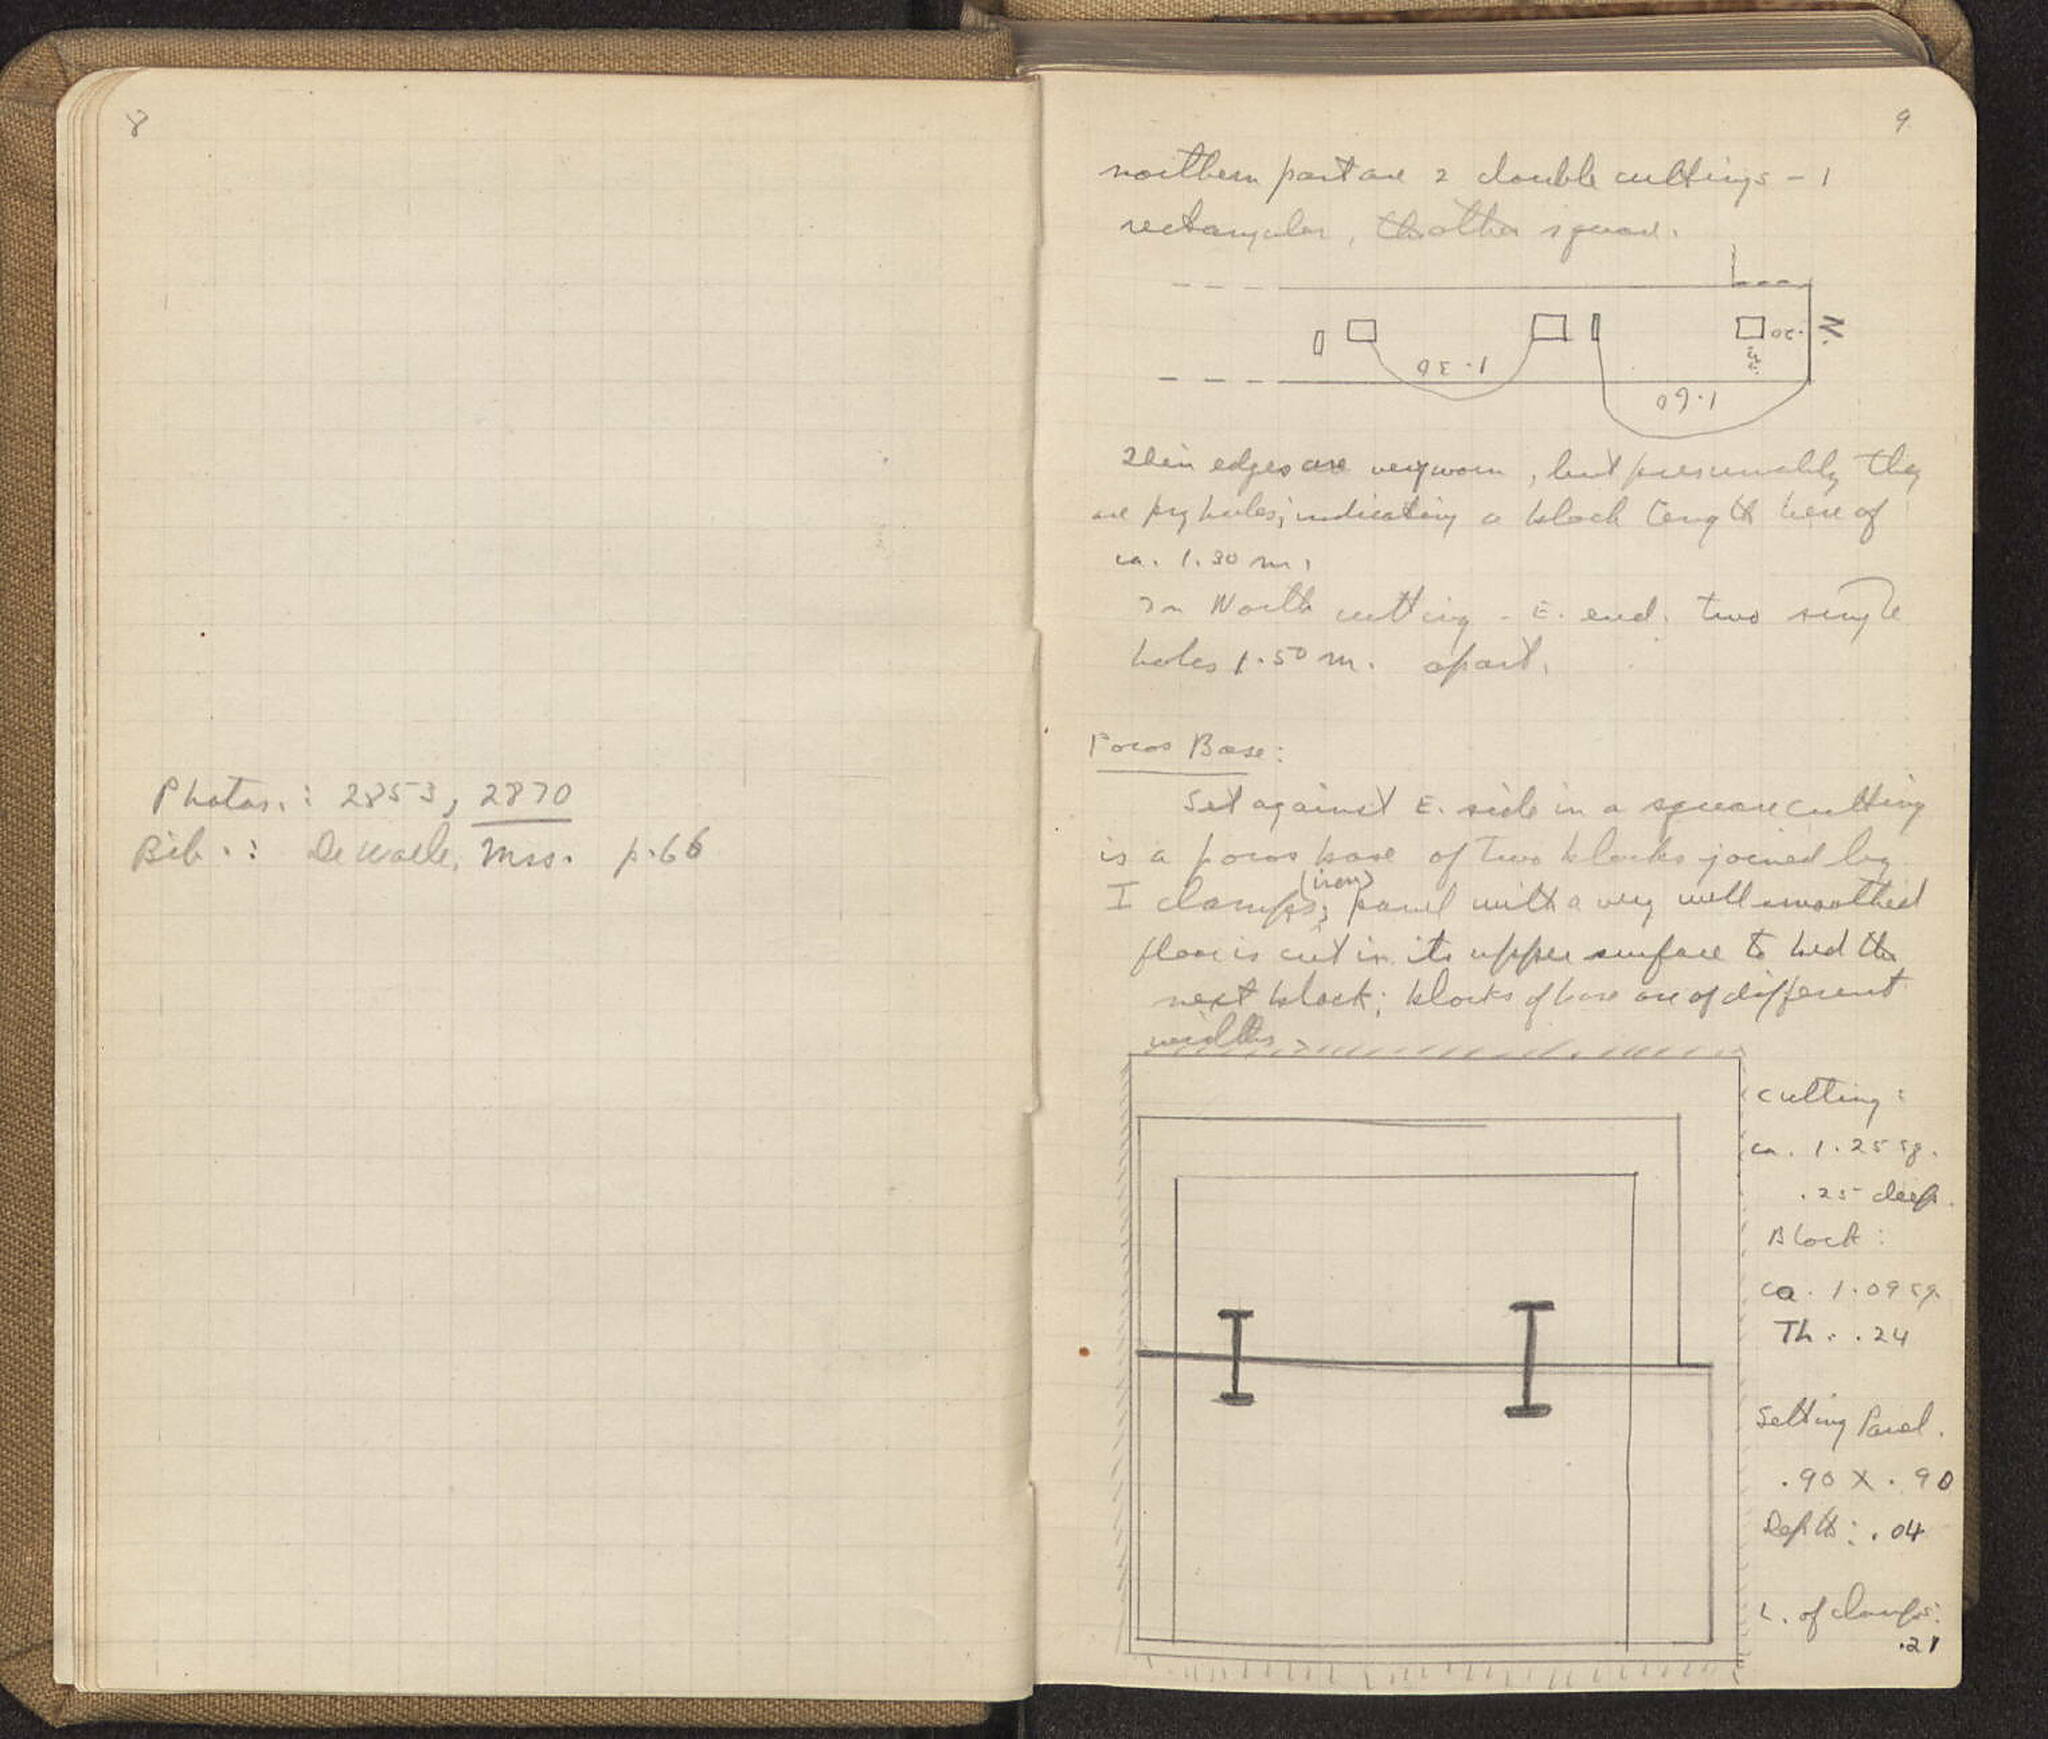 8
Photos.: 2853, 2870
Bib.: De Waele, Mss. p.66
9
northern part are 2 double cuttings - 1
rectangular, the other square.
N.
.20
1.30
1.60
Their edges are very worn, but presumably they
are pry holes; indicating a block length here of
ca. 1.30 m.
In North cutting - E. end: two single
holes 1.50 m. apart.
Poros Base:
Set against E. side in a square cutting
is a poros base of two blocks joined by
I clamps; (iron) panel with a very well smoothed
floor is cut in its upper surface to bed the
next block; blocks of base are of different
widths
Cutting:
ca. 1.25 sq.
.25 deep.
Block:
ca. 1.09 sq.
Th. .24
Setting Panel.
.90 X .90
Depth: .04
L. of clamps:
.21